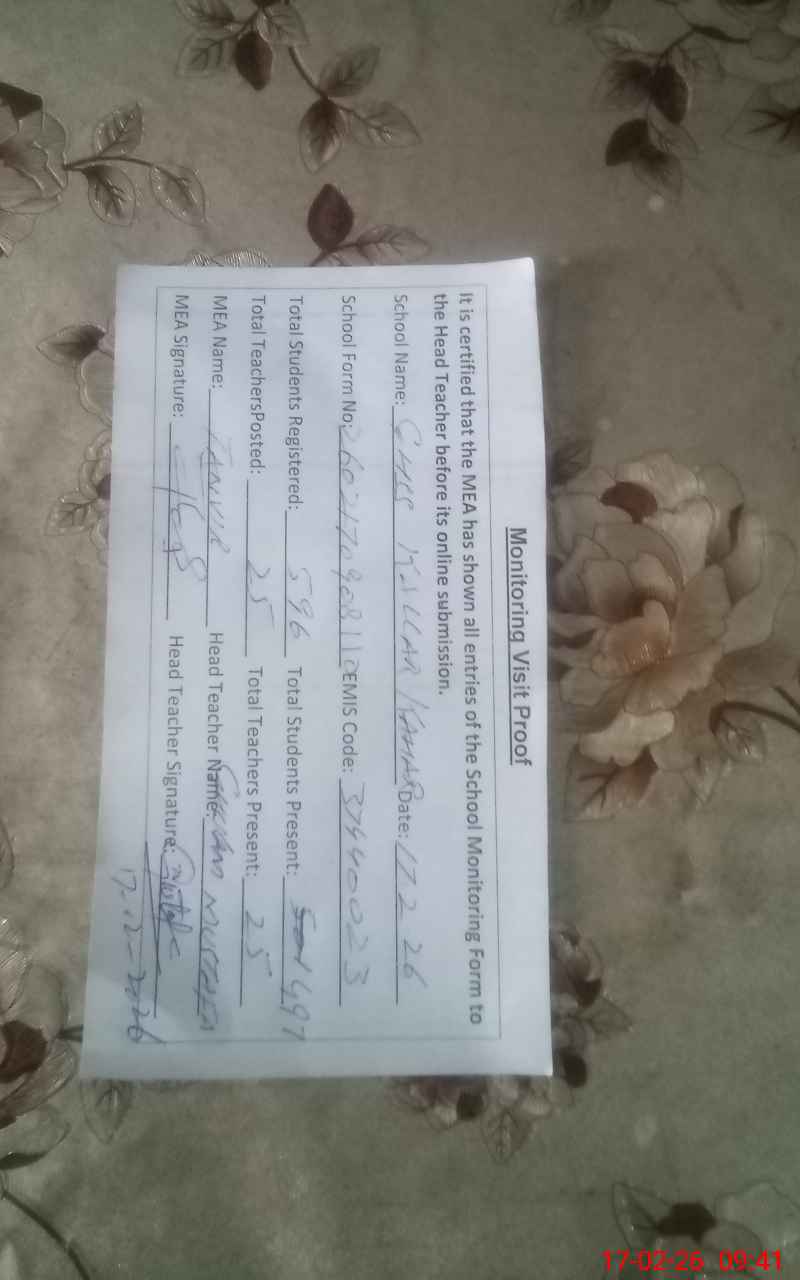 Monitoring Visit Proof
It is certified that the MEA has shown all entries of the School Monitoring Form to
the Head Teacher before its online submission.
School Name: GHSS KALLAR Date: 17 2 26
School Form No: EMIS Code: 37440023
Total Students Registered: 596 Total Students Present: 497
Total TeachersPosted: 25 Total Teachers Present: 25
MEA Name: TANVIR Head Teacher Name: MUSTAFA
MEA Signature: Head Teacher Signature:
17-02-26 09:41